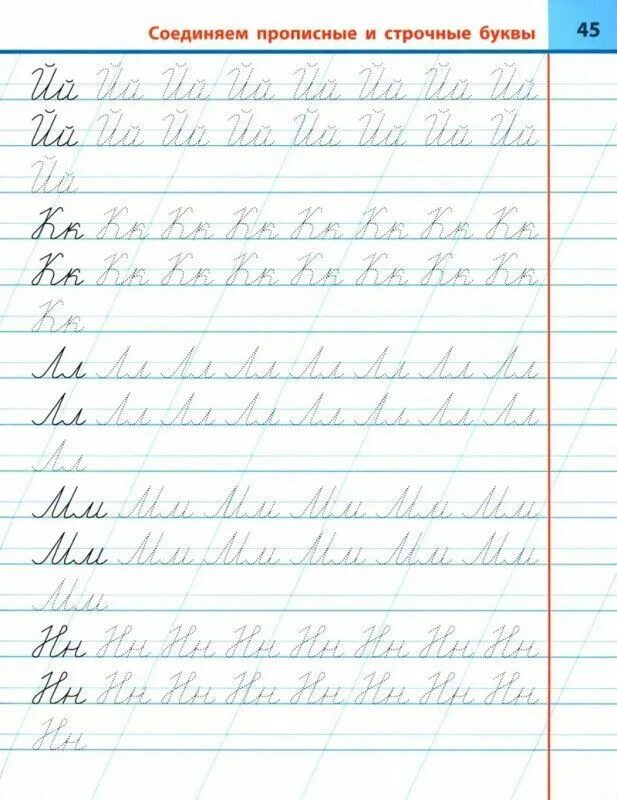 Соединяем прописные и строчные буквы 45
Йй Йй Йй Йй Йй Йй Йй Йй
Йй Йй Йй Йй Йй Йй Йй Йй
Йй
Кк Кк Кк Кк Кк Кк Кк Кк
Кк Кк Кк Кк Кк Кк Кк Кк
Кк
Лл Лл Лл Лл Лл Лл Лл Лл
Лл Лл Лл Лл Лл Лл Лл Лл
Лл
Мм Мм Мм Мм Мм Мм
Мм Мм Мм Мм Мм Мм
Мм
Нн Нн Нн Нн Нн Нн Нн Нн
Нн Нн Нн Нн Нн Нн Нн Нн
Нн